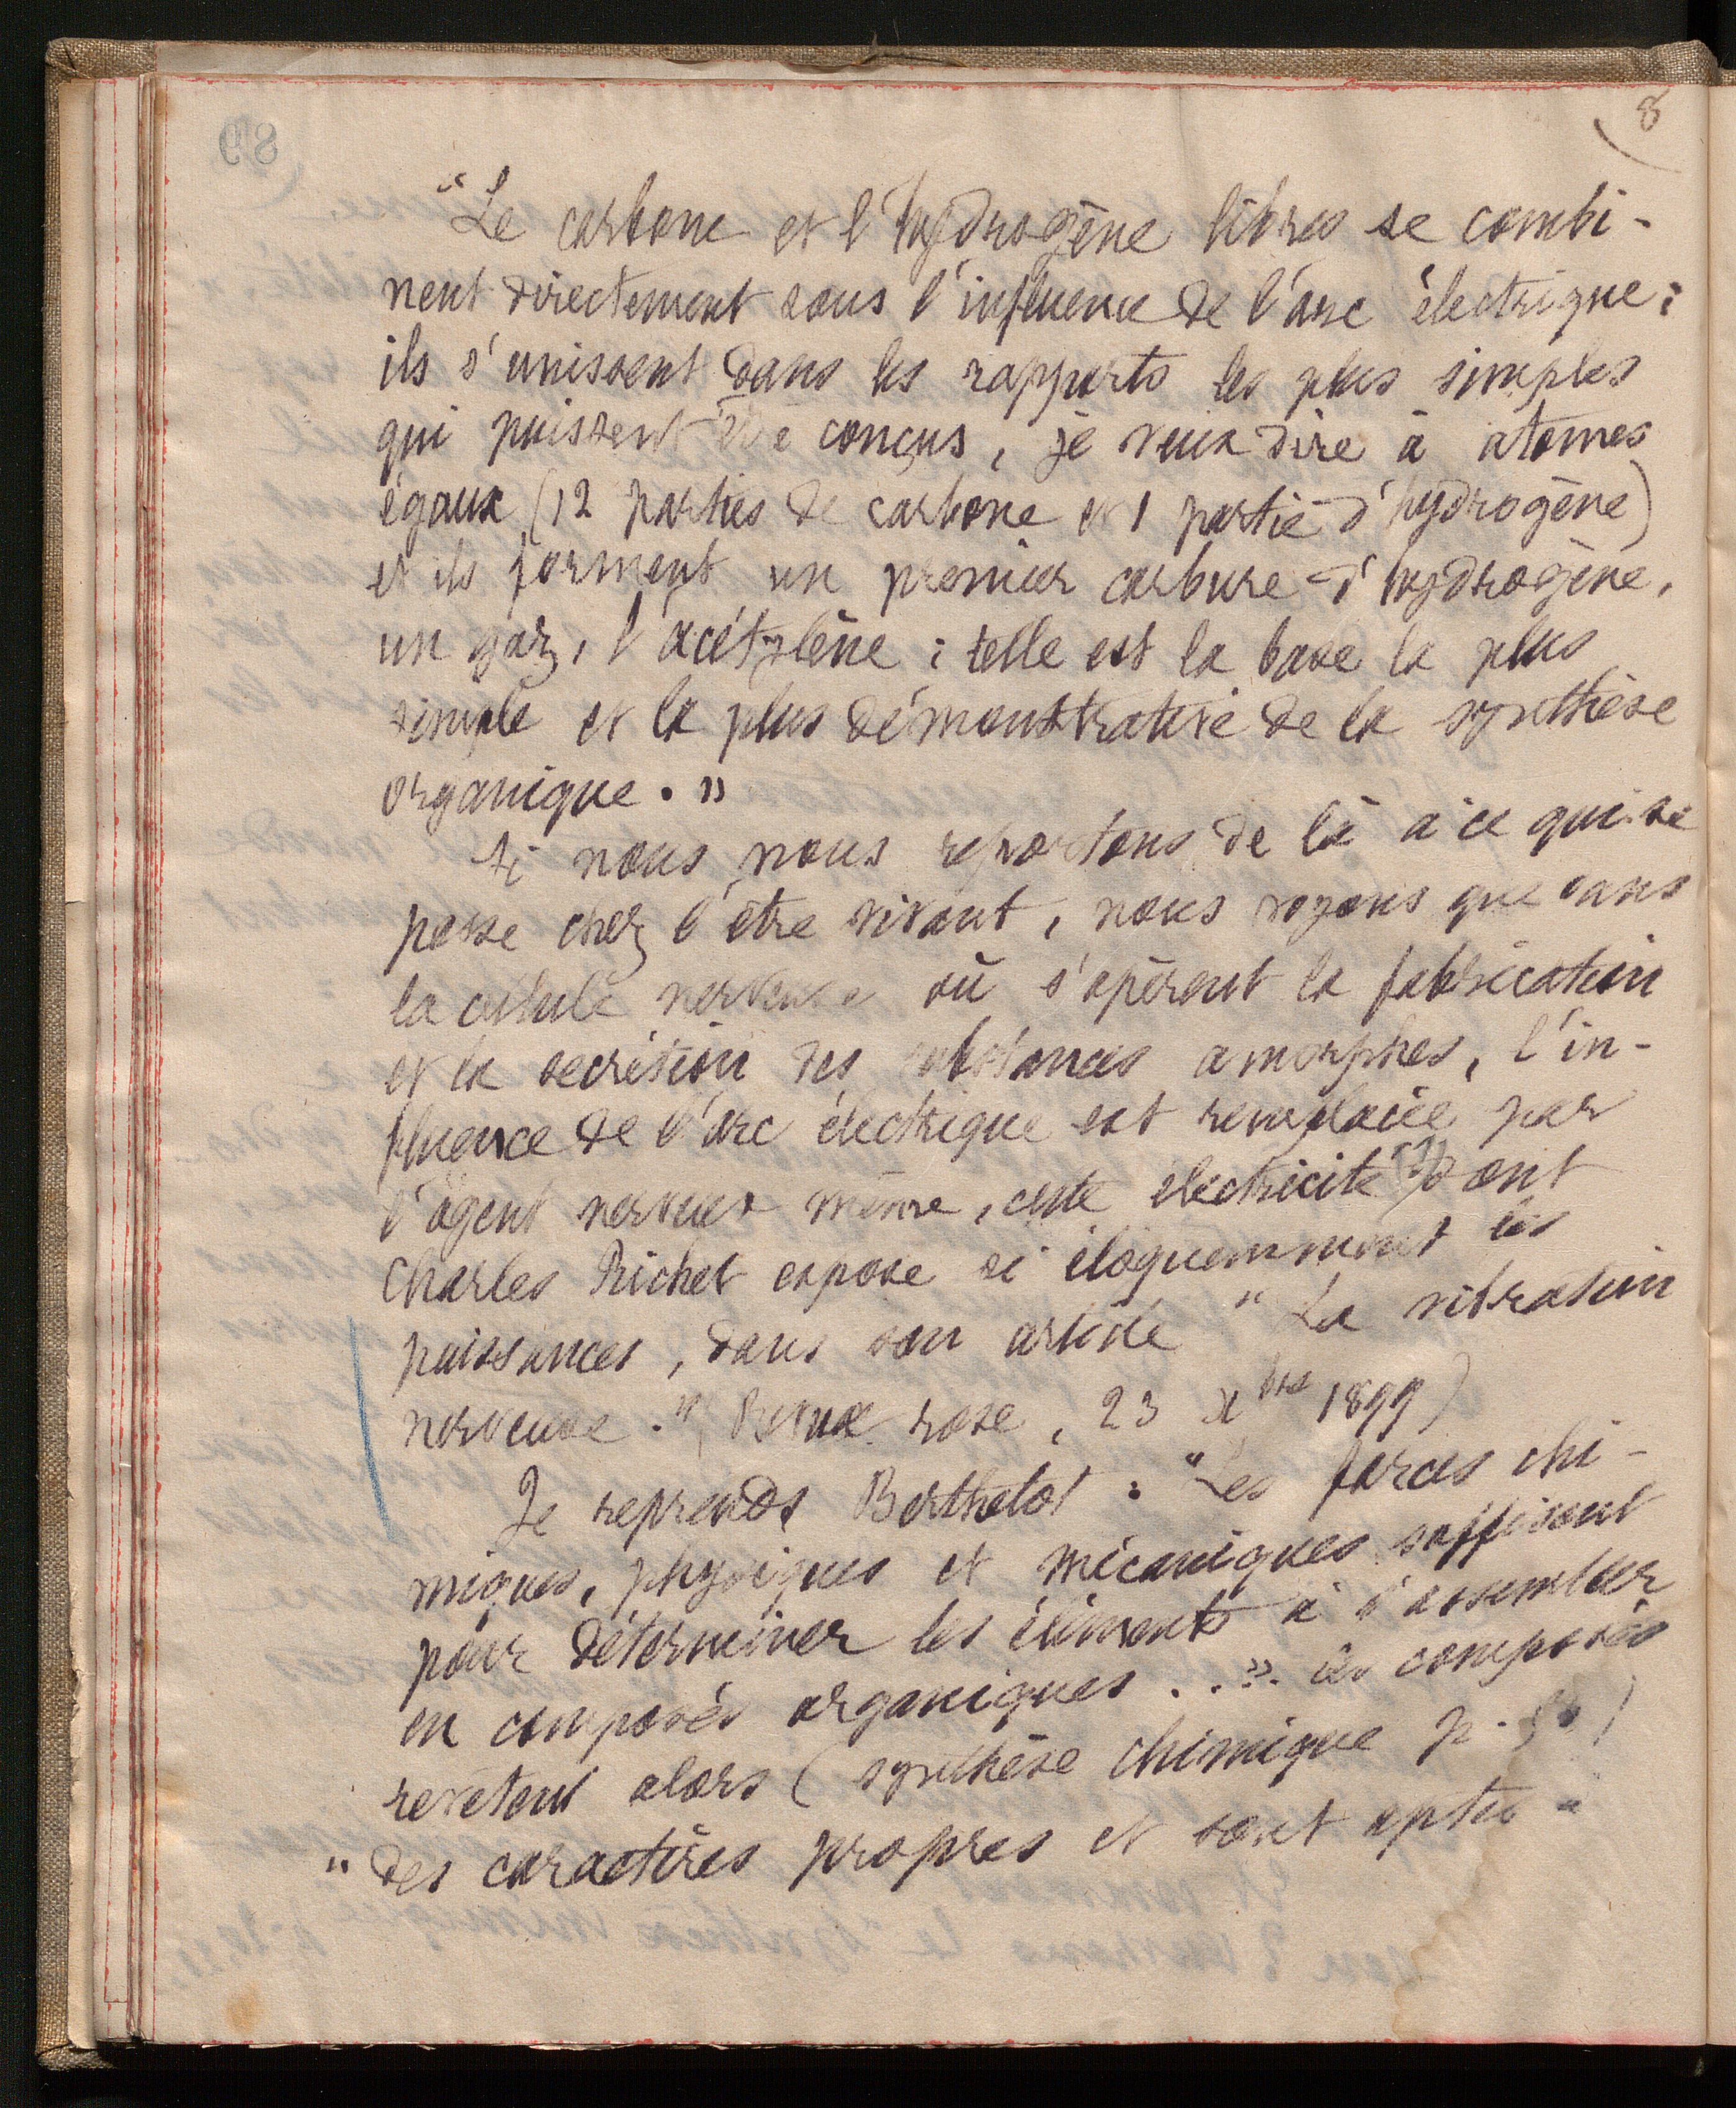 8
"Le carbone et l'hydrogène libres se combi-
nent directement sous l'influence de l'arc électrique :
ils s'unissent dans les rapports les plus simples
qui puissent être conçus, je veux dire à atomes
égaux (12 parties de carbone et 1 partie d'hydrogène)
et ils forment un premier carbure d'hydrogène,
un gaz, l'acétylène ; telle est la base la plus
simple et la plus démonstrative de la synthèse
organique. »
Si nous nous reportons de là à ce qui se
passe chez l'être vivant, nous voyons que dans
la cellule nerveuse où s'opèrent la fabrication
et la secrétion des substances amorphes, l'in-
fluence de l'arc électrique est remplacée par
l'agent nerveux même, cette electricité (?) dont
Charles Richet expose si éloquemment les
puissances, dans son article "La vibration
nerveuse." (Revue rose, 23 Xbre 1899)
Je reprends Berthelot : "Les forces chi-
miques, physiques et mécaniques suffisent
pour déterminer les éléments à s'assembler
en composés organiques ...». Ces composés
revêtent alors (synthèse chimique p.
" des caractères propres et sont aptes à